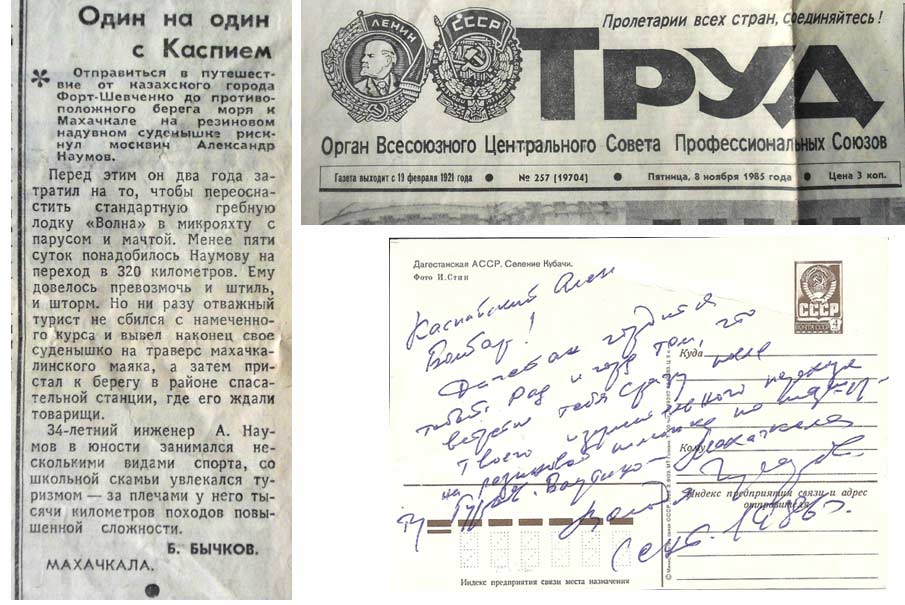 Один на один
с Каспием
* Отправиться в путешест-
вие от казахского города
Форт-Шевченко до противо-
положного берега моря к
Махачкале на резиновом
надувном суденышке риск-
нул москвич Александр
Наумов.
Перед этим он два года за-
тратил на то, чтобы переосна-
стить стандартную гребную
лодку «Волна» в микрояхту с
парусом и мачтой. Менее пяти
суток понадобилось Наумову на
переход в 320 километров. Ему
довелось превозмочь и штиль,
и шторм. Но ни разу отважный
турист не сбился с намеченно-
го курса и вывел наконец свое
суденышко на траверс махачка-
линского маяка, а затем при-
стал к берегу в районе спаса-
тельной станции, где его ждали
товарищи.
34-летний инженер А. Нау-
мов в юности занимался не-
сколькими видами спорта, со
школьной скамьи увлекался ту-
ризмом — за плечами у него ты-
сячи километров походов повы-
шенной сложности.
Б. БЫЧКОВ.
МАХАЧКАЛА.
Пролетарии всех стран, соединяйтесь!
ЛЕНИН
СССР
Труд
Орган Всесоюзного Центрального Совета Профессиональных Союзов
Газета выходит с 19 февраля 1921 года ● № 257 (19704) ● Пятница, 8 ноября 1985 года ● Цена 3 коп.
Дагестанская АССР. Селение Кубачи.
Фото И. Стин
СССР
4
Каспийский Ален
Бомбар!
Дагестан гордится
тобой. Рад и горд тем, что
встретил тебя сразу после
твоего перехода
на резиновой по
Махачкала
1986 г.
Куда
Кому
Индекс предприятия связи и адрес
отправителя
Индекс предприятия связи места назначения